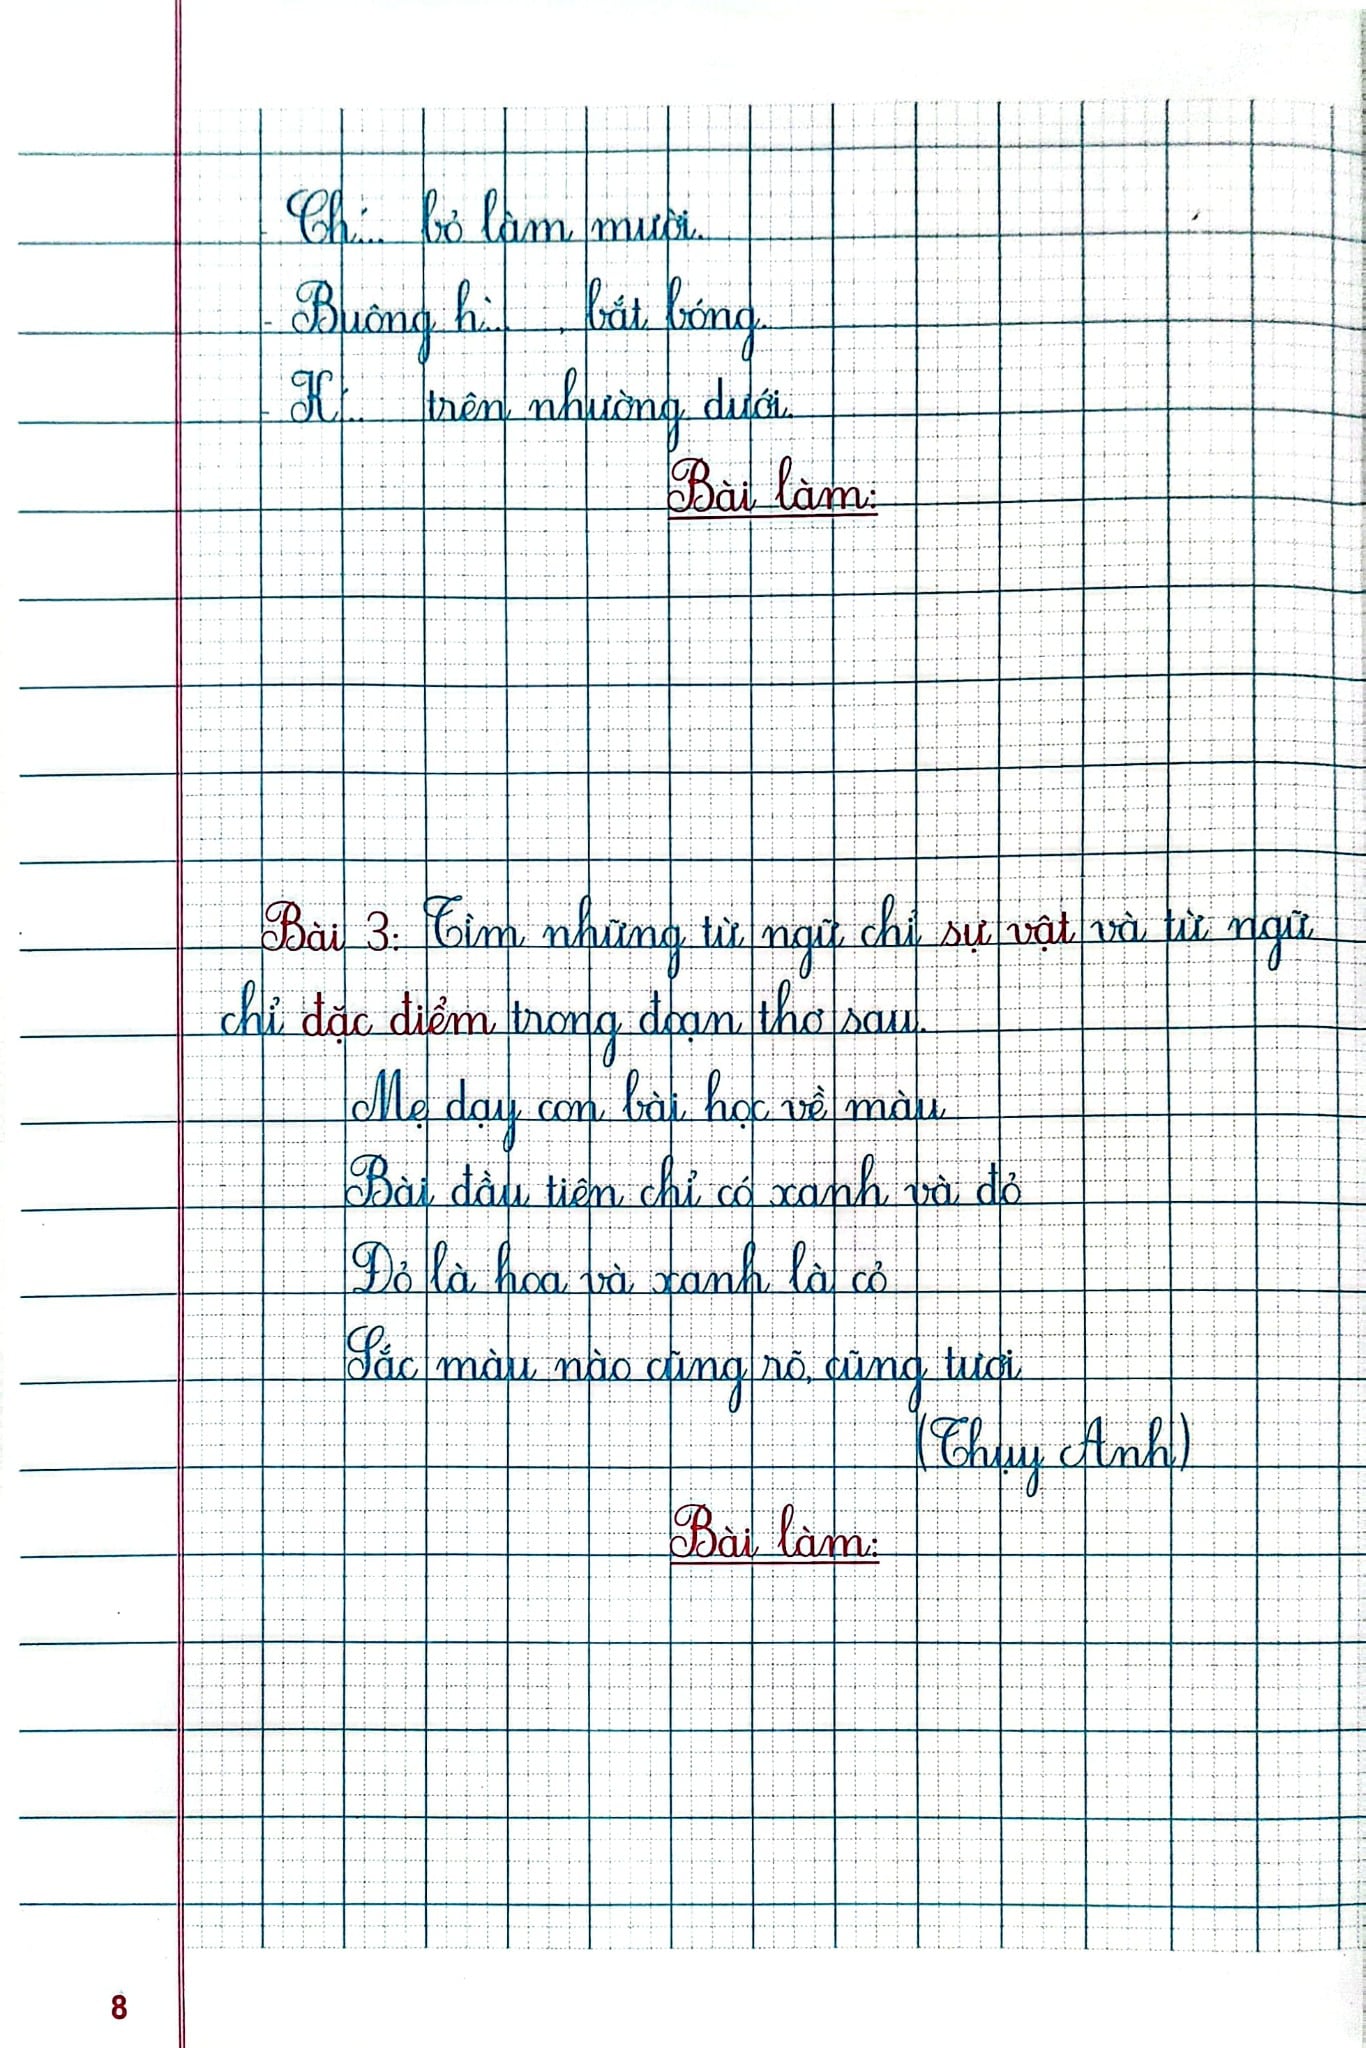 - Ch... bỏ làm mười.
- Buông h... , bắt bóng.
- K... trên nhường dưới.
Bài làm:
Bài 3: Tìm những từ ngữ chỉ sự vật và từ ngữ
chỉ đặc điểm trong đoạn thơ sau.
Mẹ dạy con bài học về màu
Bài đầu tiên chỉ có xanh và đỏ
Đỏ là hoa và xanh là cỏ
Sắc màu nào cũng rõ, cũng tươi
(Thụy Anh)
Bài làm:
8